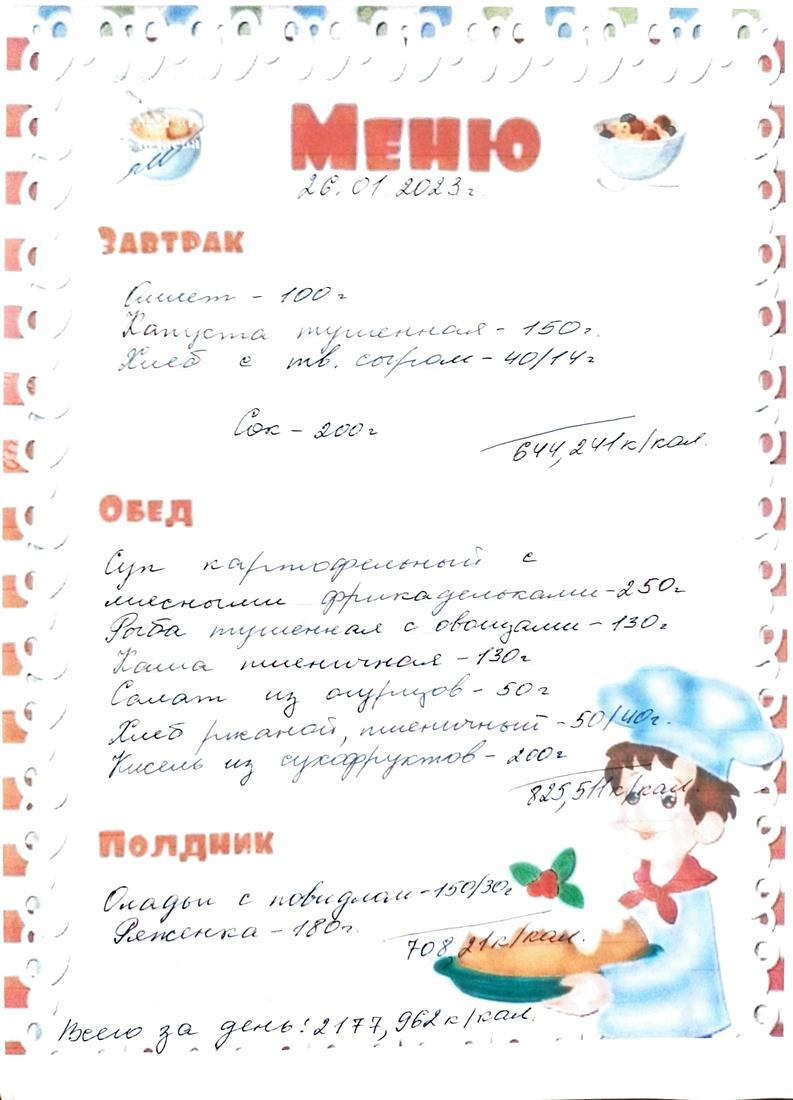 Меню
26.01.2023г.
Завтрак
Омлет - 100г
Капуста тушенная - 150г.
Хлеб с тв. сыром - 40/14г
Сок - 200г
644,241к/кал.
Обед
Суп картофельный с
мясными фрикадельками - 250г
Рыба тушенная с овощами - 130г
Каша пшеничная - 130г
Салат из огурцов - 50г
Хлеб ржаной, пшеничный - 50/40г.
Кисель из сухофруктов - 200г
825,511к/кал.
Полдник
Оладьи с повидлом - 150/30г
Ряженка - 180г.
708,21к/кал.
Всего за день: 2177,962к/кал.